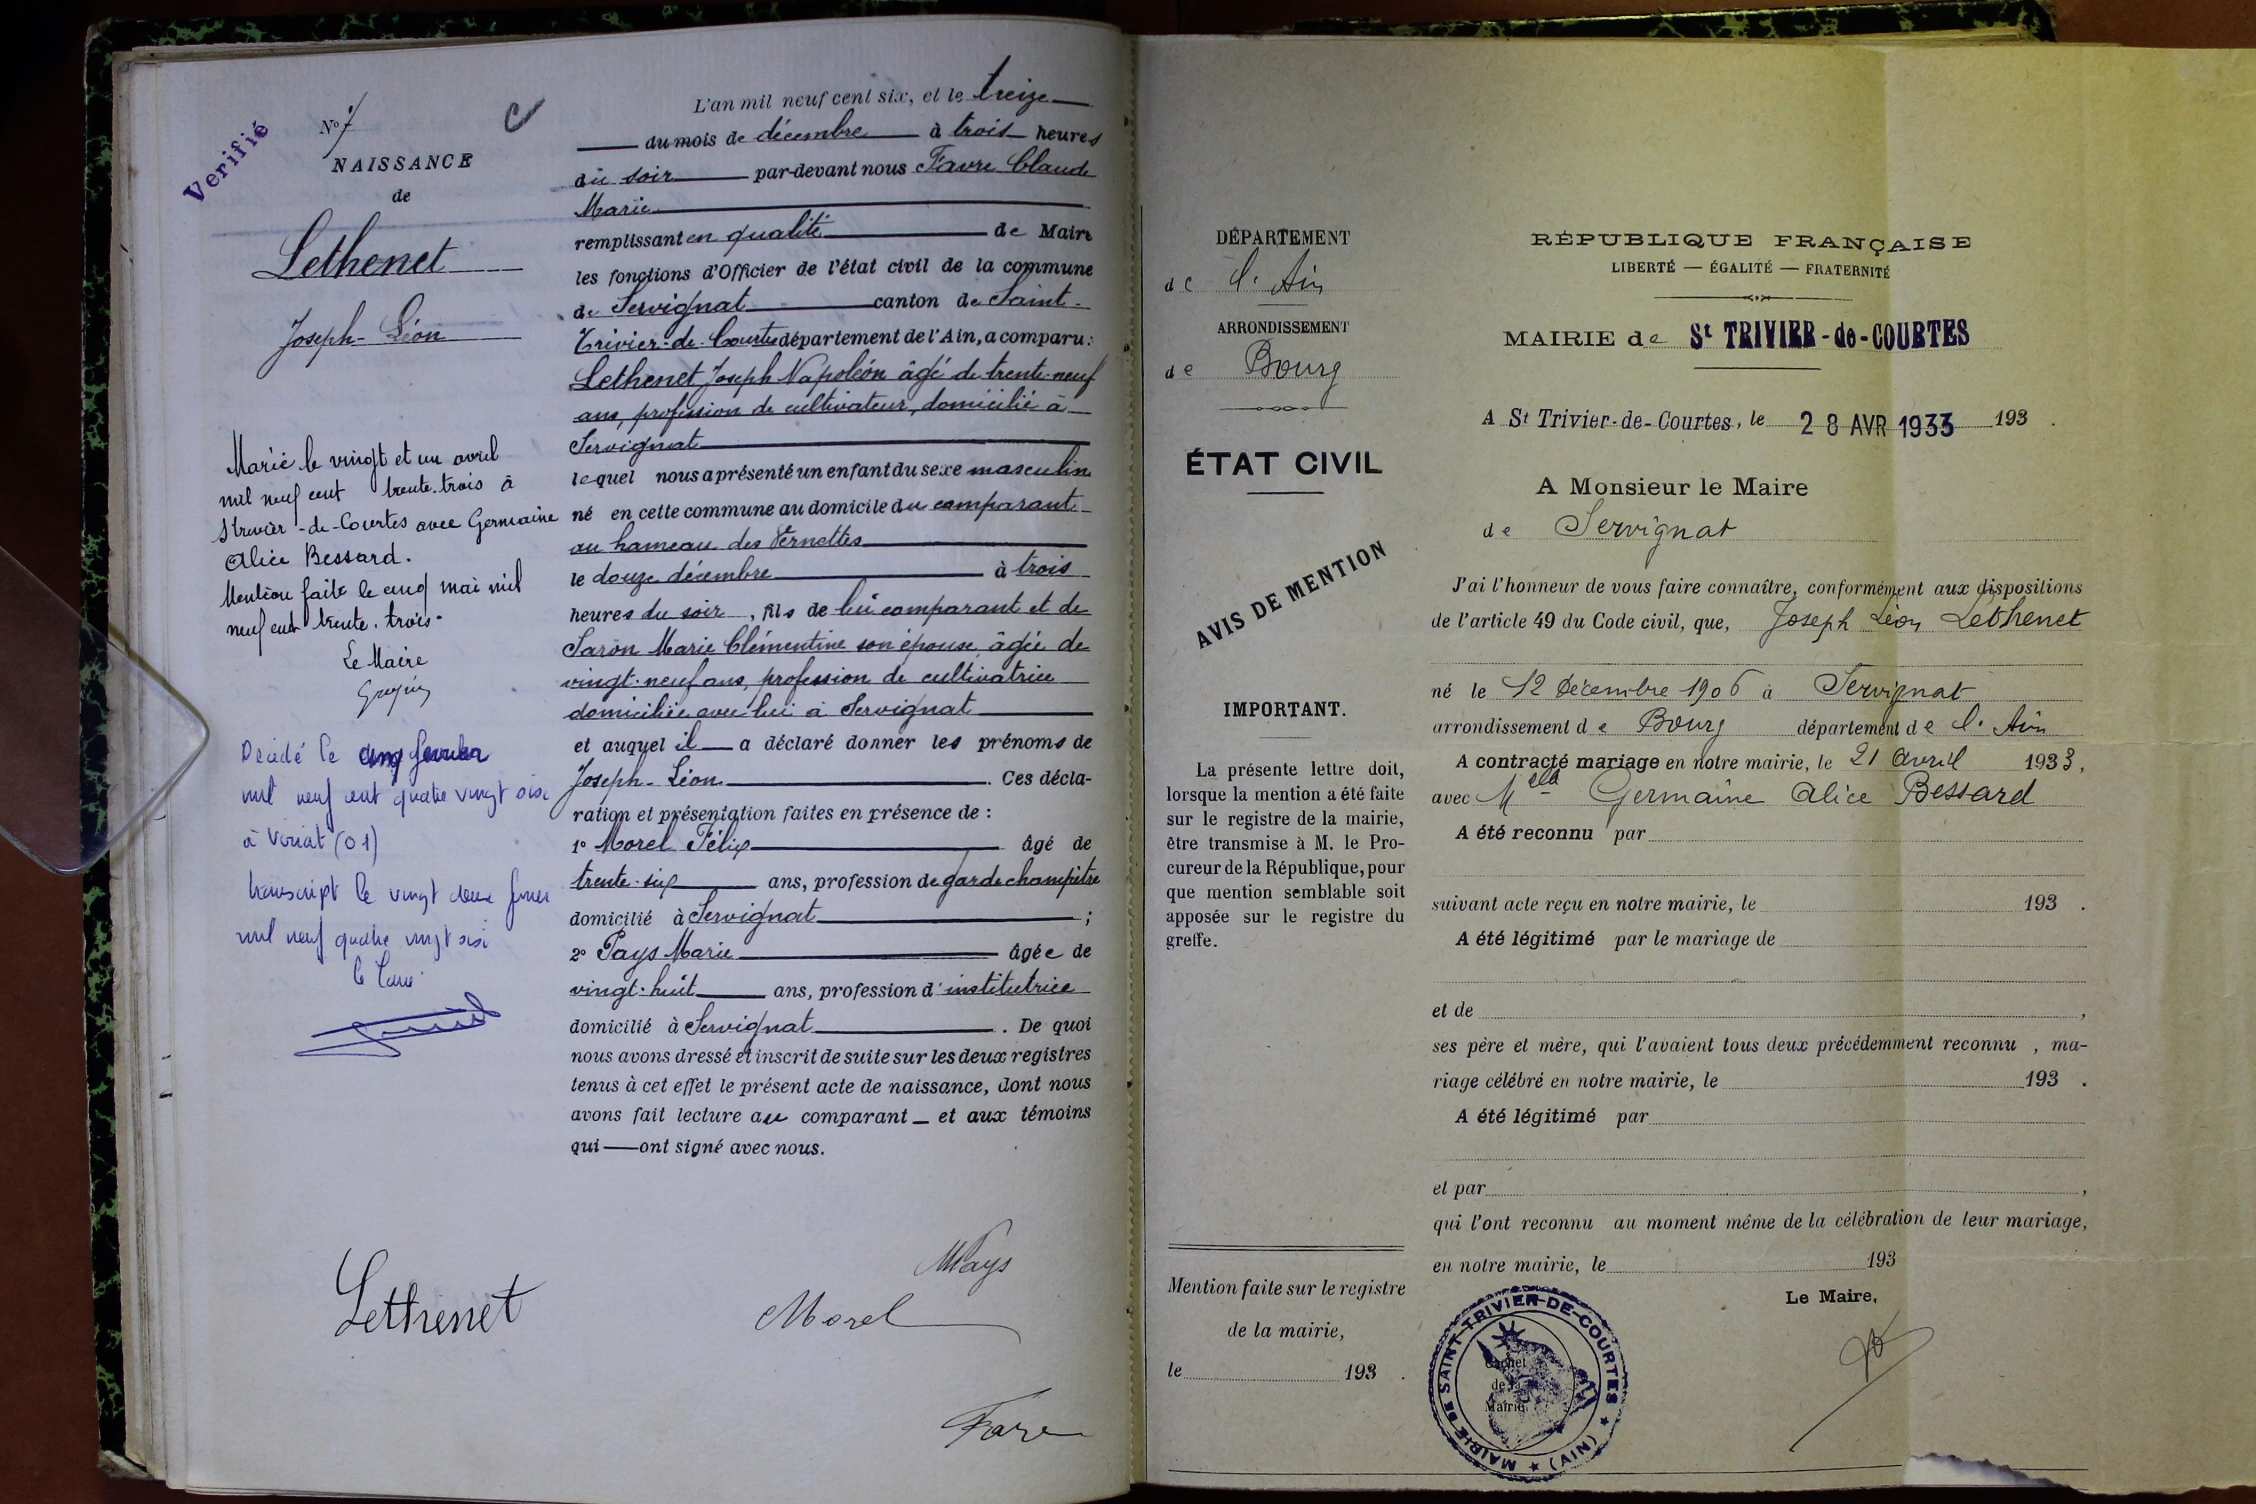 Verifié
N° 7
NAISSANCE
de
Lethenet
Joseph-Léon
Marié le vingt et un avril
mil neuf cent trente-trois à
St Trivier-de-Courtes avec Germaine
Alice Bessard.
Mention faite le cinq mai mil
neuf cent trente-trois.
Le Maire
Décédé le cinq
mil neuf cent quatre vingt six
à Viriat (01)
transcript le vingt deux
mil neuf quatre vingt six
le
Lethenet
L'an mil neuf cent six, et le treize
du mois de décembre à trois heures
du soir par-devant nous Favre Claude
Marie
remplissant en qualité de Maire
les fonctions d'Officier de l'état civil de la commune
de Servignat canton de Saint-
Trivier-de-Courtes département de l'Ain, a comparu:
Lethenet Joseph Napoléon âgé de trente-neuf
ans, profession de cultivateur, domicilié à
Servignat
lequel nous a présenté un enfant du sexe masculin
né en cette commune au domicile du comparant
au hameau des Vernettes
le douze décembre à trois
heures du soir, fils de lui comparant et de
Saron Marie Clémentine son épouse, âgée de
vingt-neuf ans, profession de cultivatrice
domiciliée avec lui à Servignat
et auquel il a déclaré donner les prénoms de
Joseph-Léon. Ces décla-
ration et présentation faites en présence de :
1° Morel Félix âgé de
trente-six ans, profession de garde champêtre
domicilié à Servignat ;
2° Pays Marie âgée de
vingt-huit ans, profession d'institutrice
domicilié à Servignat. De quoi
nous avons dressé et inscrit de suite sur les deux registres
tenus à cet effet le présent acte de naissance, dont nous
avons fait lecture au comparant et aux témoins
qui ont signé avec nous.
M Pays
Morel
Favre
DÉPARTEMENT
de l'Ain
ARRONDISSEMENT
de Bourg
ÉTAT CIVIL
AVIS DE MENTION
IMPORTANT.
La présente lettre doit,
lorsque la mention a été faite
sur le registre de la mairie,
être transmise à M. le Pro-
cureur de la République, pour
que mention semblable soit
apposée sur le registre du
greffe.
Mention faite sur le registre
de la mairie,
le 193 .
RÉPUBLIQUE FRANÇAISE
LIBERTÉ — ÉGALITÉ — FRATERNITÉ
MAIRIE de St TRIVIER-de-COURTES
A St Trivier-de-Courtes, le 28 AVR 1933 193 .
A Monsieur le Maire
de Servignat
J'ai l'honneur de vous faire connaître, conformément aux dispositions
de l'article 49 du Code civil, que, Joseph Léon Lethenet
né le 12 Décembre 1906 à Servignat
arrondissement de Bourg département de l'Ain
A contracté mariage en notre mairie, le 21 Avril 1933,
avec Melle Germaine Alice Bessard
A été reconnu par
suivant acte reçu en notre mairie, le 193 .
A été légitimé par le mariage de
et de ,
ses père et mère, qui l'avaient tous deux précédemment reconnu , ma-
riage célébré en notre mairie, le 193 .
A été légitimé par
et par ,
qui l'ont reconnu au moment même de la célébration de leur mariage,
en notre mairie, le 193
Le Maire,
MAIRIE DE SAINT-TRIVIER-DE-COURTES (AIN)
Cachet
de la
Mairie